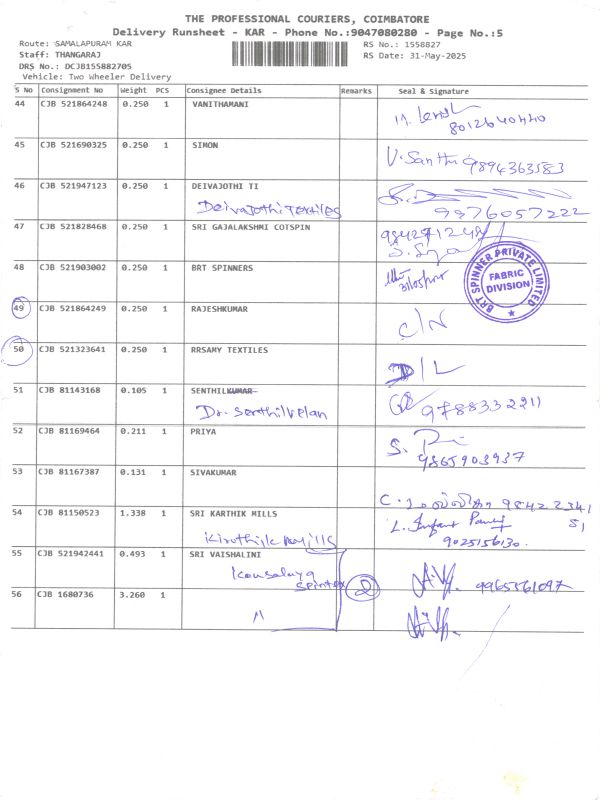 THE PROFESSIONAL COURIERS, COIMBATORE
Delivery Runsheet - KAR - Phone No.:9047080280 - Page No.:5
Route: SAMALAPURAM KAR RS No.: 1558827
Staff: THANGARAJ RS Date: 31-May-2025
DRS No.: DCJB155882705
Vehicle: Two Wheeler Delivery
S No Consignment No Weight PCS Consignee Details Remarks Seal & Signature
44 CJB 521864248 0.250 1 VANITHAMANI
8012640440
45 CJB 521690325 0.250 1 SIMON
V. Santhi 9894363583
46 CJB 521947123 0.250 1 DEIVAJOTHI TI
Deivajothi Textiles 9976057222
47 CJB 521828468 0.250 1 SRI GAJALAKSHMI COTSPIN
48 CJB 521903002 0.250 1 BRT SPINNERS
BRT SPINNER PRIVATE LIMITED
FABRIC
DIVISION
49 CJB 521864249 0.250 1 RAJESHKUMAR
C/N
50 CJB 521323641 0.250 1 RRSAMY TEXTILES
D/L
51 CJB 81143168 0.105 1 SENTHILKUMAR
Dr. Senthilvelan 9788332211
52 CJB 81169464 0.211 1 PRIYA
9865903937
53 CJB 81167387 0.131 1 SIVAKUMAR
54 CJB 81150523 1.338 1 SRI KARTHIK MILLS
9025156130
55 CJB 521942441 0.493 1 SRI VAISHALINI
Kousalaya
Spintex 2 9965361097
56 CJB 1680736 3.260 1